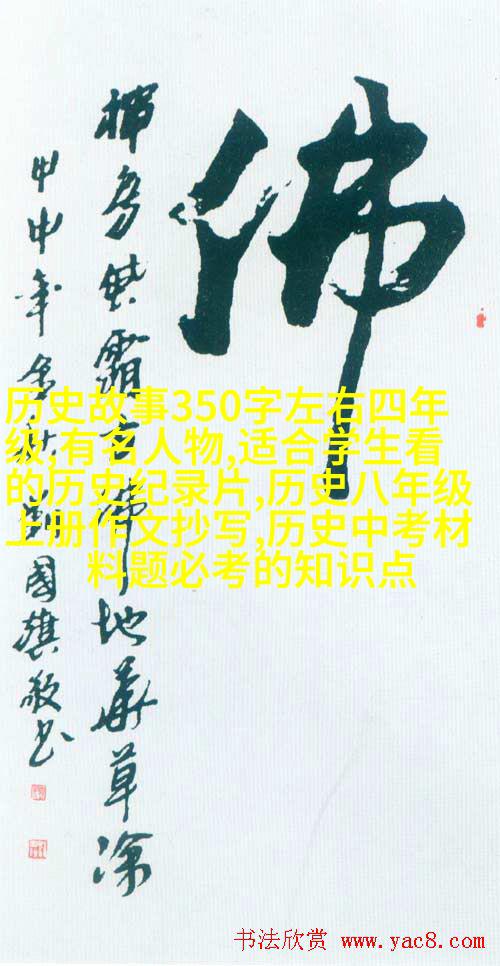 佛
霜 佛地 草
甲申年金秋 國旗敬书
历史故事350字左右四年
级,有名人物,适合学生看
的历史纪录片,历史八年级
上册作文抄写,历史中考材
料题必考的知识点
书法欣赏 www.yac8.com